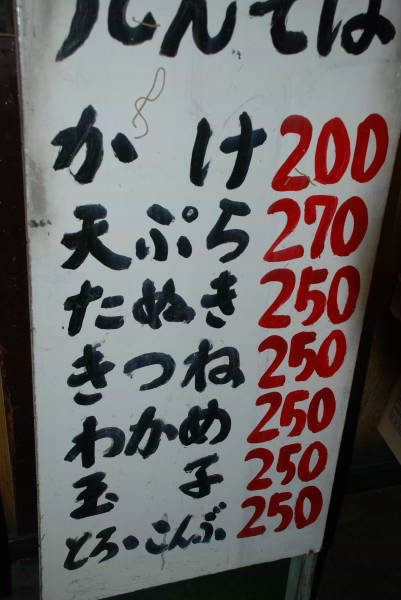 んそば
かけ 200
天ぷら 270
たぬき 250
きつね 250
わかめ 250
玉子 250
とろゝこんぶ 250